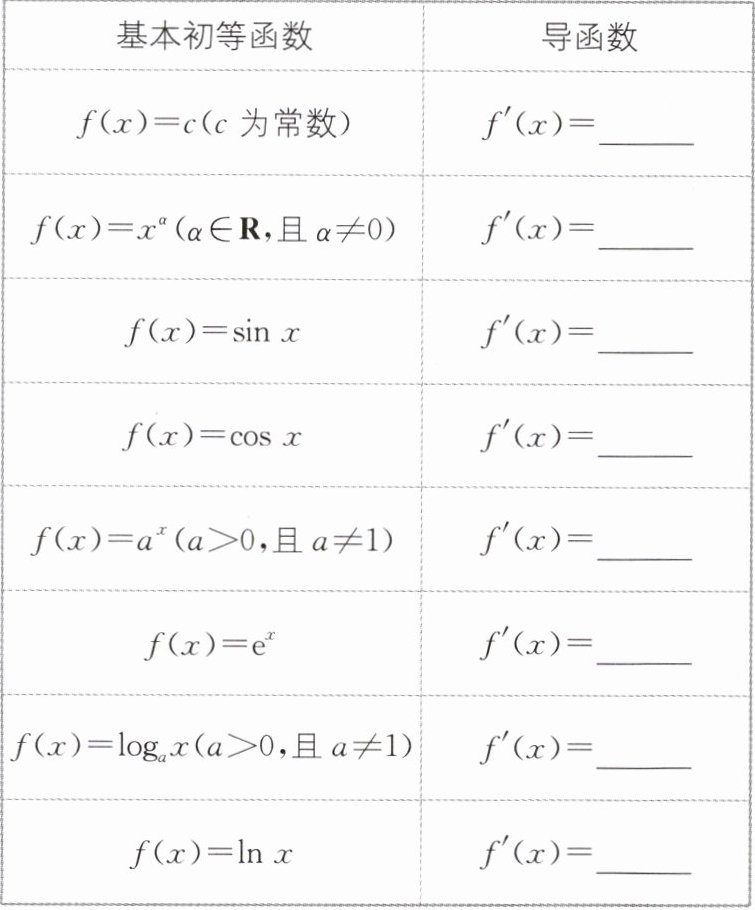 基本初等函数 导函数
f(x)=c(c 为常数) f′(x)=______
f(x)=x^α(α∈R,且 α≠0) f′(x)=______
f(x)=sin x f′(x)=______
f(x)=cos x f′(x)=______
f(x)=a^x(a>0,且 a≠1) f′(x)=______
f(x)=e^x f′(x)=______
f(x)=log_a x(a>0,且 a≠1) f′(x)=______
f(x)=ln x f′(x)=______